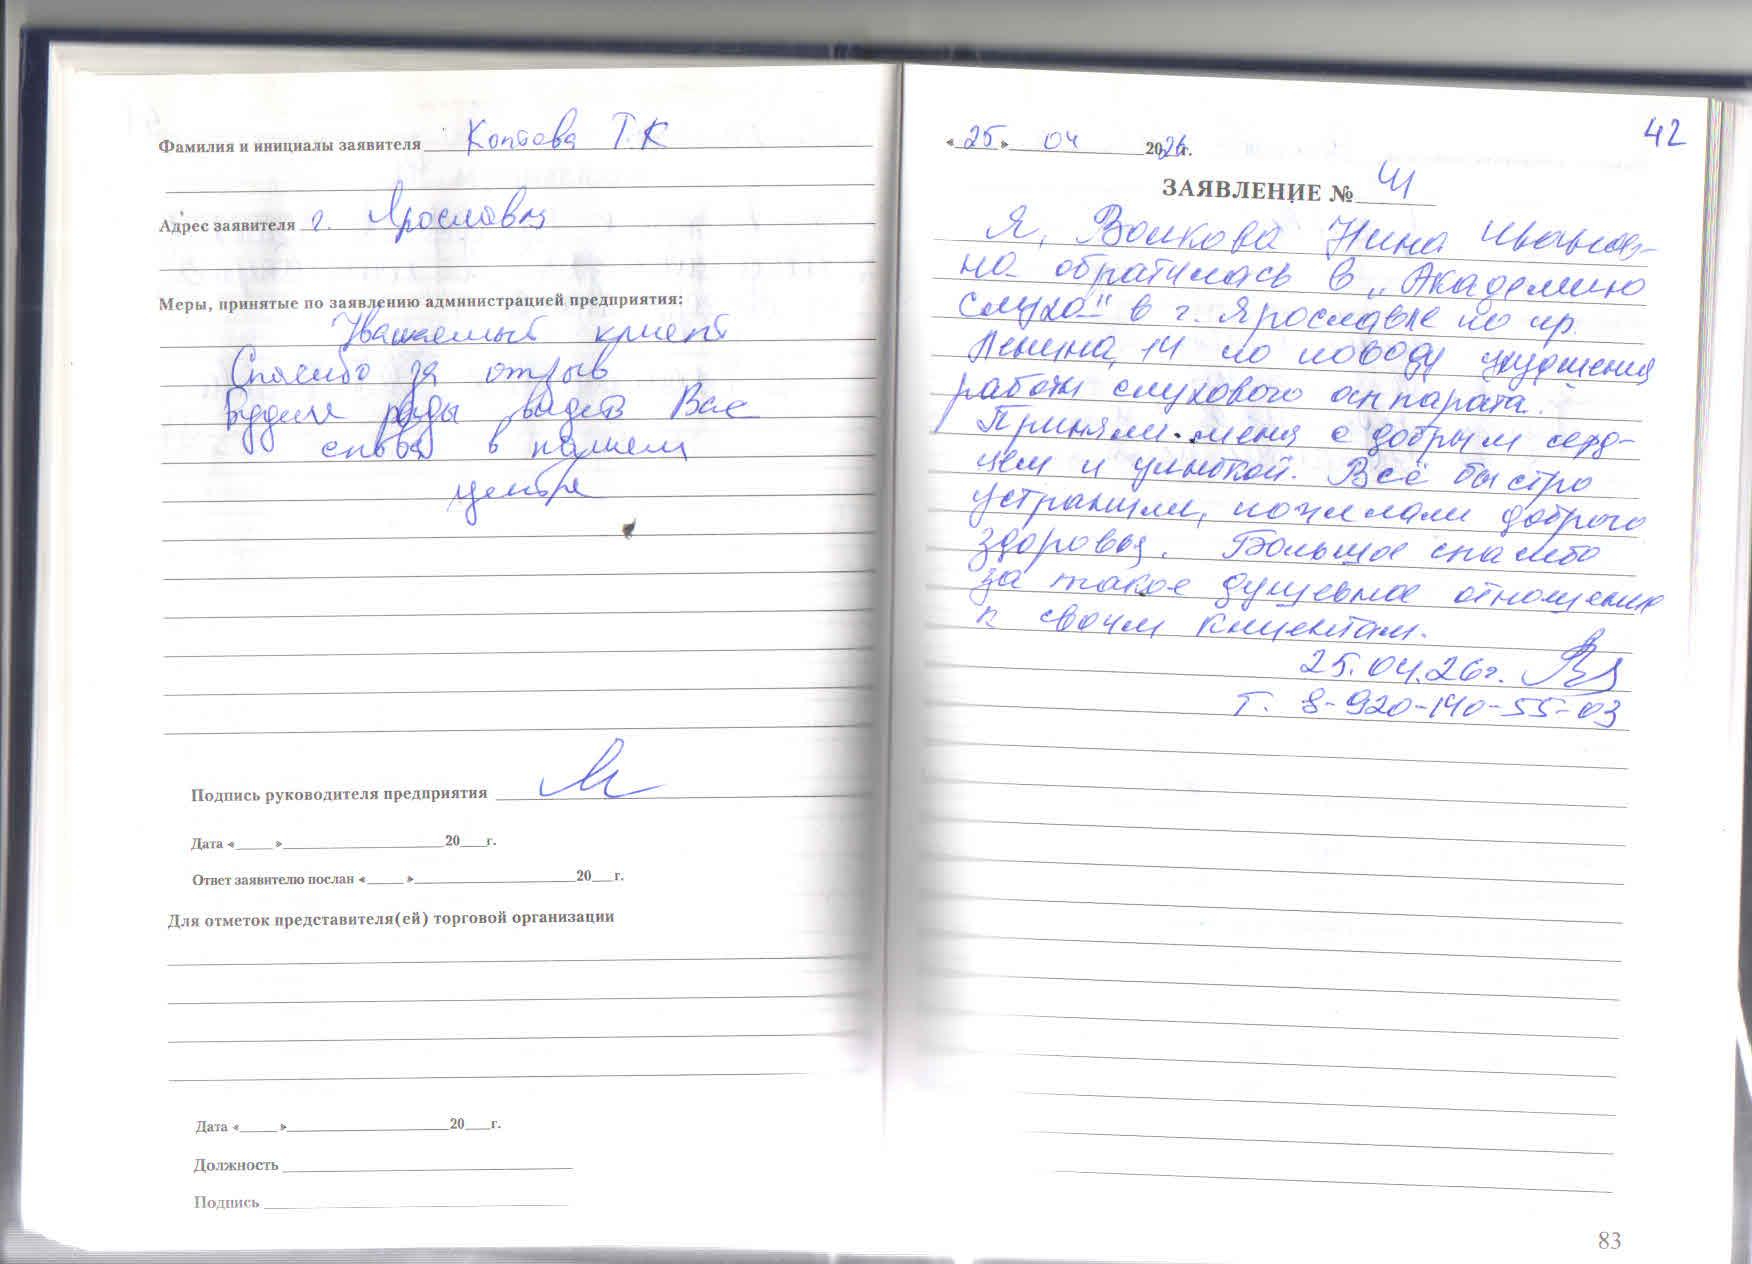 Фамилия и инициалы заявителя Коптева Т.К
Адрес заявителя г. Ярославль
Меры, принятые по заявлению администрацией предприятия:
Уважаемый клиент
Спасибо за отзыв
Будем рады видеть Вас
снова в нашем
центре
Подпись руководителя предприятия
Дата «___»___20___г.
Ответ заявителю послан «___»___20___г.
Для отметок представителя(ей) торговой организации
Дата «___»___20___г.
Должность
Подпись
42
«25» 04 2026г.
ЗАЯВЛЕНИЕ № 41
Я, Волкова Нина Иванов-
на обратилась в „Академию
слуха" в г. Ярославле по пр.
Ленина, 14 по поводу ухудшения
работы слухового аппарата.
Приняли меня с добрым серд-
цем и улыбкой. Всё быстро
устранили, пожелали доброго
здоровья. Большое спасибо
за такое душевное отношение
к своим клиентам.
25.04.26г.
Т. 8-920-140-55-03
83